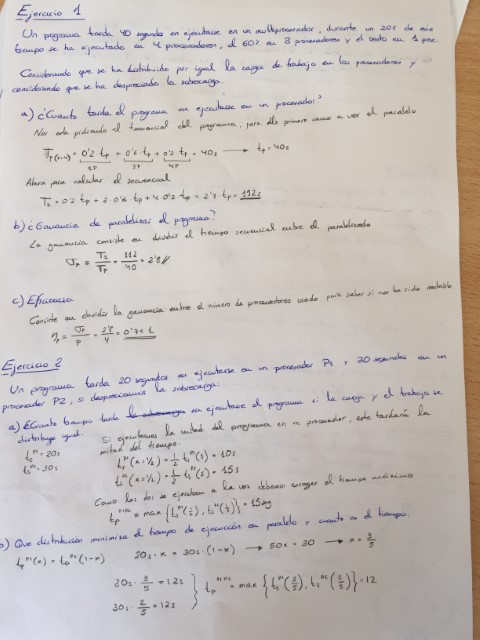 Ejercicio 1
Un programa tarda 40 segundos en ejecutarse en un multiprocesador, durante un 20% de ese
tiempo se ha ejecutado en 4 procesadores, el 60% en 3 procesadores y el resto en 1 proc.
Considerando que se ha distribuido por igual la carga de trabajo en los procesadores y
considerando que se ha despreciado la sobrecarga.
a) ¿Cuanto tarda el programa en ejecutarse en un procesador?
Nos esta pidiendo el secuencial del programa, para ello primero vamos a ver el paralelo
= 40s → tp = 40s
Ahora para calcular el secuencial
= 112s
b) ¿Ganancia de paralelizar el programa?
La ganancia consiste en dividir el tiempo secuencial entre el paralelizado
= Ts/Tp = 112/40 = 2'8 //
c) Eficiencia
Consiste en dividir la ganancia entre el número de procesadores usado para saber si nos ha sido rentable
= 2'8/4 = 0'7 < 1
Ejercicio 2
Un programa tarda 20 segundos en ejecutarse en un procesador P1 y 30 segundos en un
procesador P2, si despreciamos la sobrecarga:
a) ¿Cuanto tiempo tarda en ejecutarse el programa si la carga y el trabajo se
distribuye igual.
Si ejecutamos la mitad del programa en procesador, este tardará la
mitad del tiempo.
= 20s
= 30s
(x=1/2) = 1/2 = 10s
(x=1/2) = 1/2 = 15s
Como los dos se ejecutan a la vez debemos escoger el tiempo máximo
= max = 15seg
b) Que distribución minimiza el tiempo de ejecución en paralelo y cuanto es el tiempo.
20s · x = 30s · (1-x) → 50x = 30 → x = 3/5
20s · 3/5 = 12s
30s · 2/5 = 12s
= max = 12